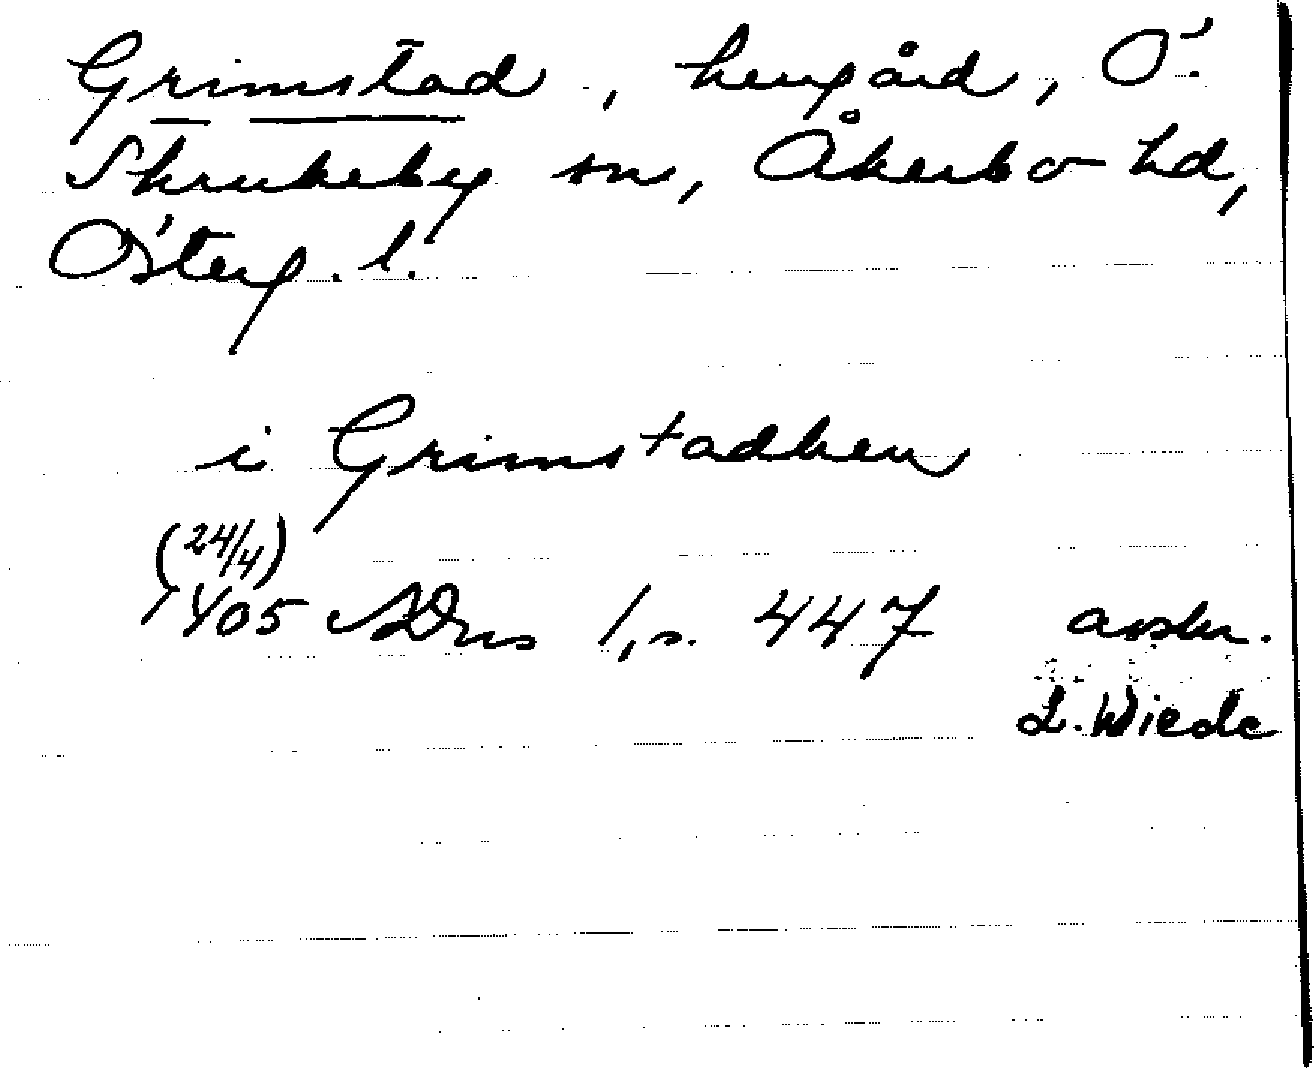 Grimstad, herrgård, Ö.
Skrukeby sn, Åkerbo hd,
Österg. l.
i Grimstadhen
(24/4)
1405 SDns 1, s. 447 avskr.
L. Wiede